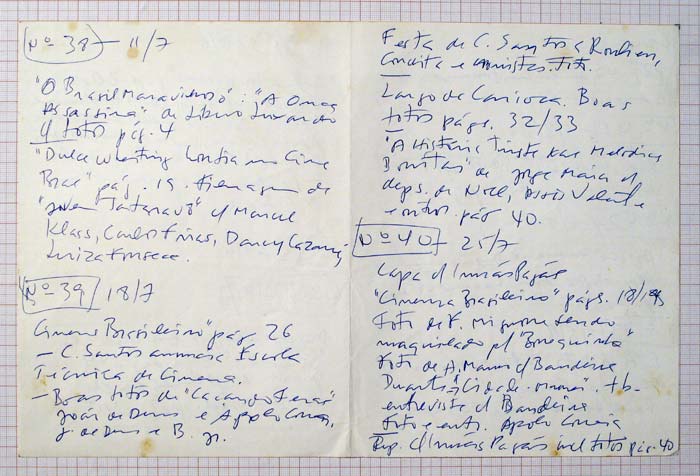 Nº 38 - 11/7
"O Brasil Maravilhoso": "A Onça
Assassina" de Líbero Luxardo
c/ fotos pág. 4
"Dulce Wheiting no Cine
Bras" pág. 19. de
"João Tataravô" c/ Marcel
Klass, Carlos Frias, Darcy Cazarré,
Luiza Fonseca.
Nº 39 18/7
Cinema Brasileiro" pág 26
- C. Santos anuncia Escola
Técnica de Cinema.
- Boas fotos de "Caçando Feras"
João de Deus e Apolo Correia,
J. de Deus e B. Jr.
Festa de C. Santos a Roulien,
Conchita e cronistas. Foto.
Largo da Carioca. Boas
fotos págs. 32/33
"A História Triste das Melodias
Bonitas" de Jorge Maia c/
deps. de Noel, Assis Valente
e outros. pág 40.
Nº 40 - 25/7
Capa c/ Irmãs Pagãs
"Cinema Brasileiro" págs. 18/19
Foto de F. Mignone sendo
maquilado p/ "Bonequinha"
Foto de A. c/ Bandeira
Duarte Cidade-Mulher. tb.
entrevista c/ Bandeira
foto e entr. Apolo Correia
Rep. c/ Irmãs Pagãs incl fotos pág. 40